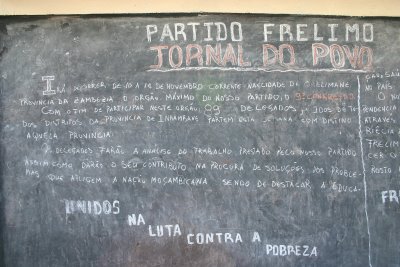 PARTIDO FRELIMO
JORNAL DO POVO
IRÁ DECORRER, DE 10 A 14 DE NOVEMBRO CORRENTE NA CIDADE DE QUELIMANE
PROVÍNCIA DA ZAMBEZIA O ORGÃO MÁXIMO DO NOSSO PARTIDO, O
COM O TIM DE PARTICIPAR NESTE ORGÃO, 09 DELEGADOS IDOS DE TO
DOS DISTRITOS DA PROVINCIA DE INHAMBANE PARTEM ESTA SEMANA COM DISTINO
AQUELA PROVINCIA.
DELEGADOS FARÃO A ANALISE DO TRABALHO PRESADO PELO NOSSO PARTIDO
ASSIM COMO DARÃO O SEU CONTRIBUTO NA PROCURA DE SOLUÇÕES DOS PROBLE-
MAS QUE AFLIGEM A NAÇÃO MOÇAMBICANA SENDO DE DESTACAR, A EDUCA-
UNIDOS NA LUTA CONTRA A POBREZA
NO PAIS
O NO
ATRAVE
TRELIM
CER O
ROSTO
FR